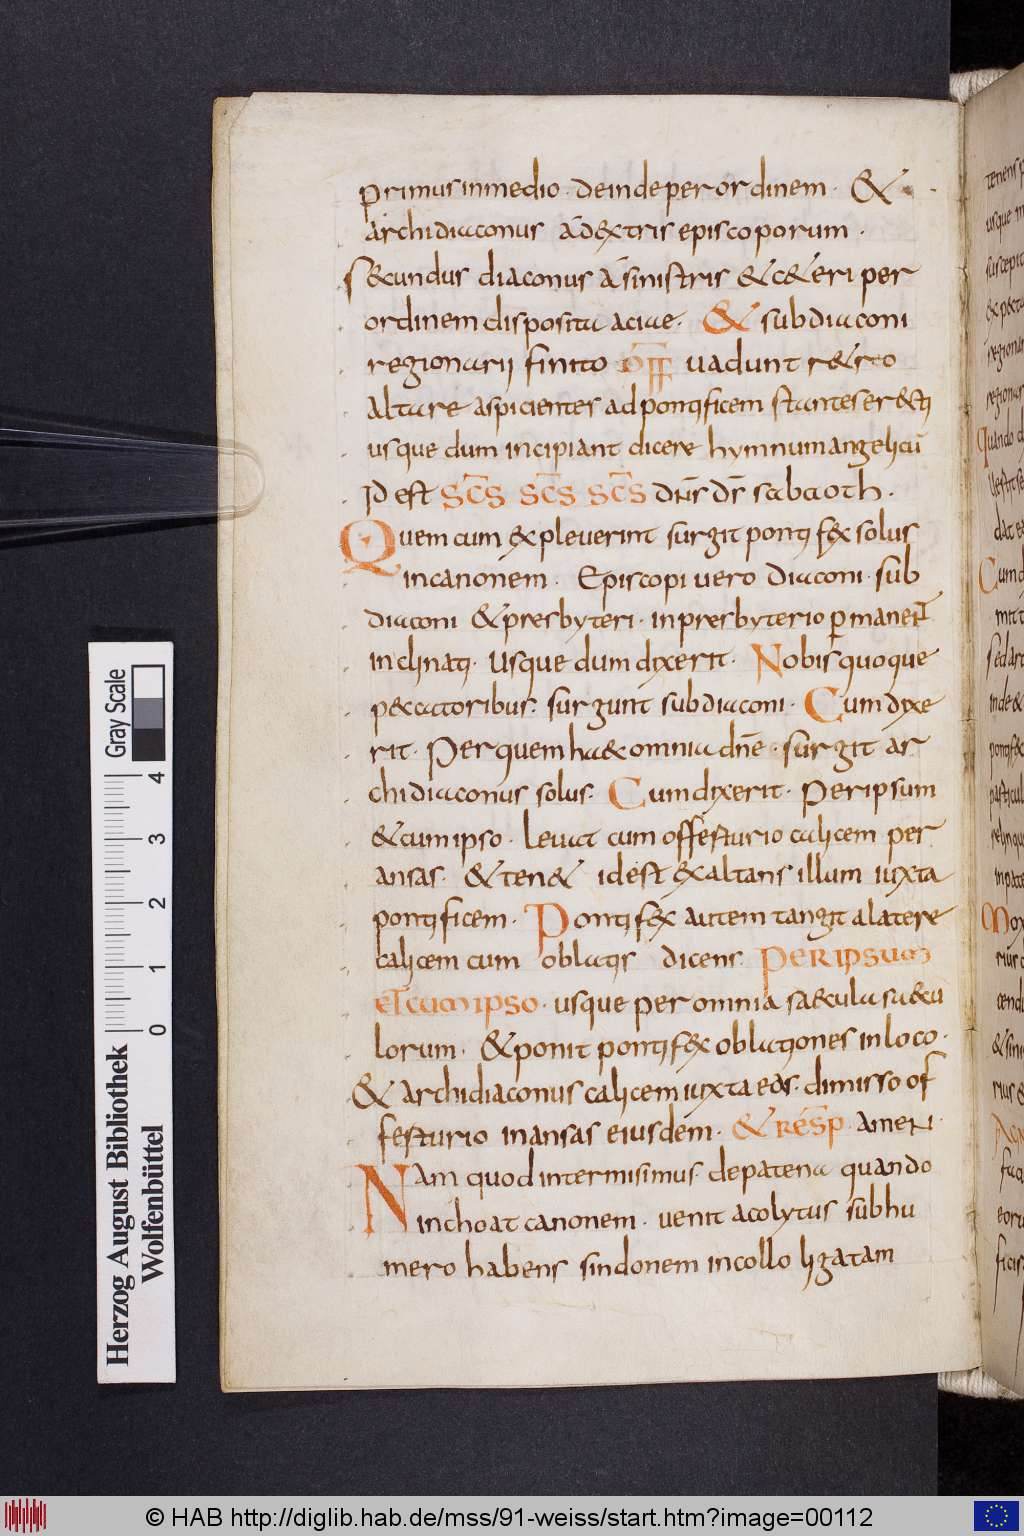 primus inmedio · deinde per ordinem · &
archidiaconus ad dextris episcoporum ·
secundus diaconus a sinistris & c&eri per
ordinem disposita aciae · & subdiaconi
regionarii finito off vadunt r&ro
altare aspicientes ad pontificem stantes er&ti
usque dum incipiant dicere hymnum angelicū
id est SC̄S SC̄S SC̄S dn̄s ds̄ sabaoth ·
Quem cum expleverint surgit pontifex solus
in canonem · Episcopi vero diaconi · sub
diaconi & presbyteri · in presbyterio p̱maneN̄T
inclinati · Usque dum dixerit · Nobis quoque
peccatoribus · surgunt subdiaconi · Cum dixe
rit · Per quem haec omnia dn̄e · surgit ar
chidiaconus solus · Cum dixerit · Per ipsum
& cum ipso · levat cum offerturio calicem per
ansas · & ten& id est exaltans illum iuxta
pontificem · Pontifex autem tangit a latere
calicem cum oblatis dicens · PER IPSUM
ET CUM IPSO · usque per omnia saecula saecu
lorum · & ponit pontifex oblationes in loco ·
& archidiaconus calicem iuxta eas · dimisso of
ferturio in ansas eiusdem · & RESP̄ · AMEN ·
Nam quod intermisimus · de patena quando
inchoat canonem · venit acolytus sub hu
mero habens sindonem in collo ligatam
Herzog August Bibliothek
Wolfenbüttel
0 1 2 3 4
Gray Scale
usque
Quando
Cum
Mox
© HAB http://diglib.hab.de/mss/91-weiss/start.htm?image=00112